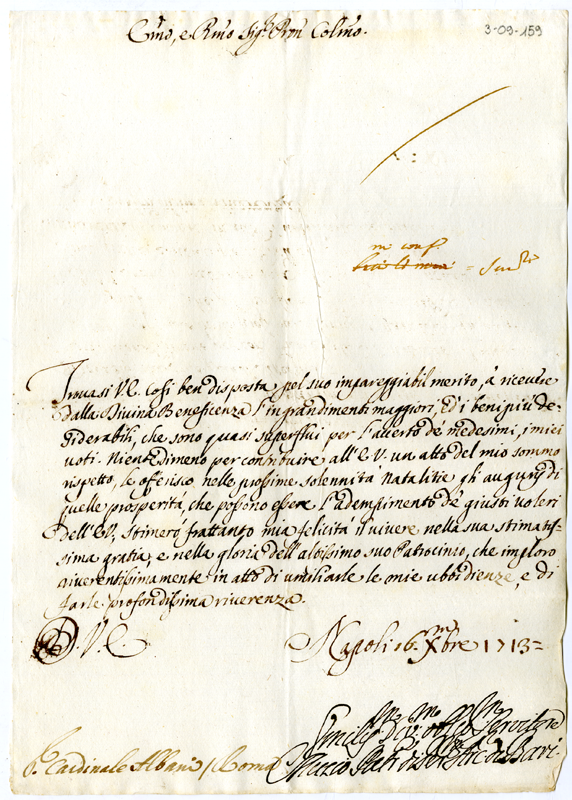 Emo, e Rmo Sigr. Pron Colmo.
3-09-159
Truovasi V.E. così ben disposta pel suo impareggiabil merito, à ricevere
dalla Divina Beneficenza l'ingrandimenti maggiori, ed i beni più de-
siderabili, che sono quasi superflui per l'accerto de' medesimi, i miei
voti. Nientedimeno per contribuire all'E.V. un atto del mio sommo
rispetto, le offerisco nelle prossime solennità natalitie gli augurij di
quelle prosperità, che possono essere l'adempimento de' giusti voleri
dell'E.V. Stimerò frattanto mia felicità il vivere nella sua stimatis-
sima gratia, e nella gloria dell'altissimo suo Patrocinio, che imploro
riverentissimamente in atto di umiliarle le mie ubbidienze, e di
farle profondissima riverenza.
D. V. E.
Napoli 16. Xmbre 1713=
Servitore
di Bari
Cardinale Albani / Roma